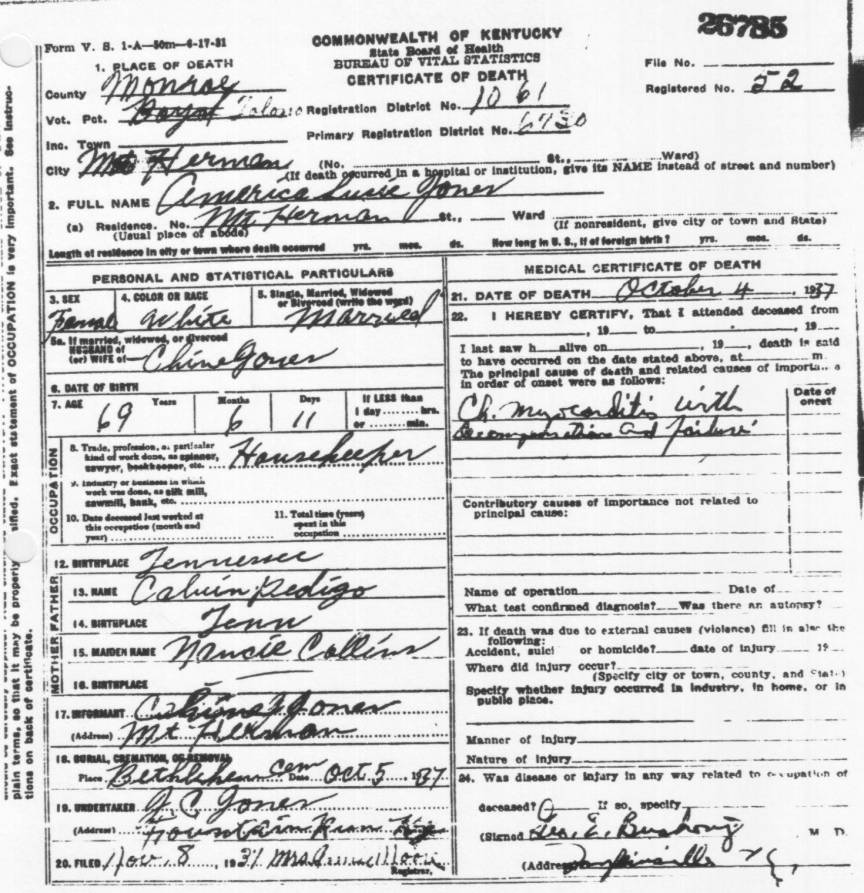 26785
Form V. S. 1-A—50m—6-17-31
COMMONWEALTH OF KENTUCKY
State Board of Health
BUREAU OF VITAL STATISTICS
CERTIFICATE OF DEATH
File No.
Registered No. 52
1. PLACE OF DEATH
County Monroe
Vot. Pct. Boyd
Registration District No. 1061
Inc. Town
Primary Registration District No. 6930
City Mt Herman (No. St., Ward)
(If death occurred in a hospital or institution, give its NAME instead of street and number)
2. FULL NAME America Susie Jones
(a) Residence. No. Mt Herman St., Ward
(Usual place of abode) (If nonresident, give city or town and State)
Length of residence in city or town where death occurred yrs. mos. ds. How long in U. S., if of foreign birth? yrs. mos. ds.
PERSONAL AND STATISTICAL PARTICULARS
3. SEX 4. COLOR OR RACE 5. Single, Married, Widowed or Divorced (write the word)
Female White Married
5a. If married, widowed, or divorced
HUSBAND of
(or) WIFE of Jones
6. DATE OF BIRTH
7. AGE Years Months Days If LESS than
69 6 11 1 day ........ hrs.
or ........ min.
OCCUPATION
8. Trade, profession, or particular
kind of work done, as spinner, Housekeeper
sawyer, bookkeeper, etc.
9. Industry or business in which
work was done, as silk mill,
sawmill, bank, etc.
10. Date deceased last worked at
this occupation (month and
year)
11. Total time (years)
spent in this
occupation
12. BIRTHPLACE Tennessee
FATHER
13. NAME Calvin Pedigo
14. BIRTHPLACE Tenn
MOTHER
15. MAIDEN NAME Nancie Collins
16. BIRTHPLACE —
17. INFORMANT Jones
(Address) Mt Herman
18. BURIAL, CREMATION, OR REMOVAL
Place Bethlehem cem Date Oct 5 1937
19. UNDERTAKER J. C. Jones
(Address) Fountain Run Ky
20. FILED Nov. 8, 1937 Mrs Moore
Registrar.
MEDICAL CERTIFICATE OF DEATH
21. DATE OF DEATH October 4 1937
22. I HEREBY CERTIFY, That I attended deceased from
, 19 to , 19
I last saw h alive on , 19 , death is said
to have occurred on the date stated above, at m.
The principal cause of death and related causes of importance
in order of onset were as follows:
Date of onset
Ch. Myocarditis with
decompensation and failure
Contributory causes of importance not related to
principal cause:
Name of operation Date of
What test confirmed diagnosis? Was there an autopsy?
23. If death was due to external causes (violence) fill in also the
following:
Accident, suici or homicide? date of injury 19
Where did injury occur?
(Specify city or town, county, and State)
Specify whether injury occurred in industry, in home, or in
public place.
Manner of injury
Nature of injury
24. Was disease or injury in any way related to occupation of
deceased? If so, specify
(Signed Geo. E. Bushong M D.
(Address Tompkinsville Ky,
plain terms, so that it may be properly sified. Exact statement of OCCUPATION is very important. See instruc-
tions on back of certificate.